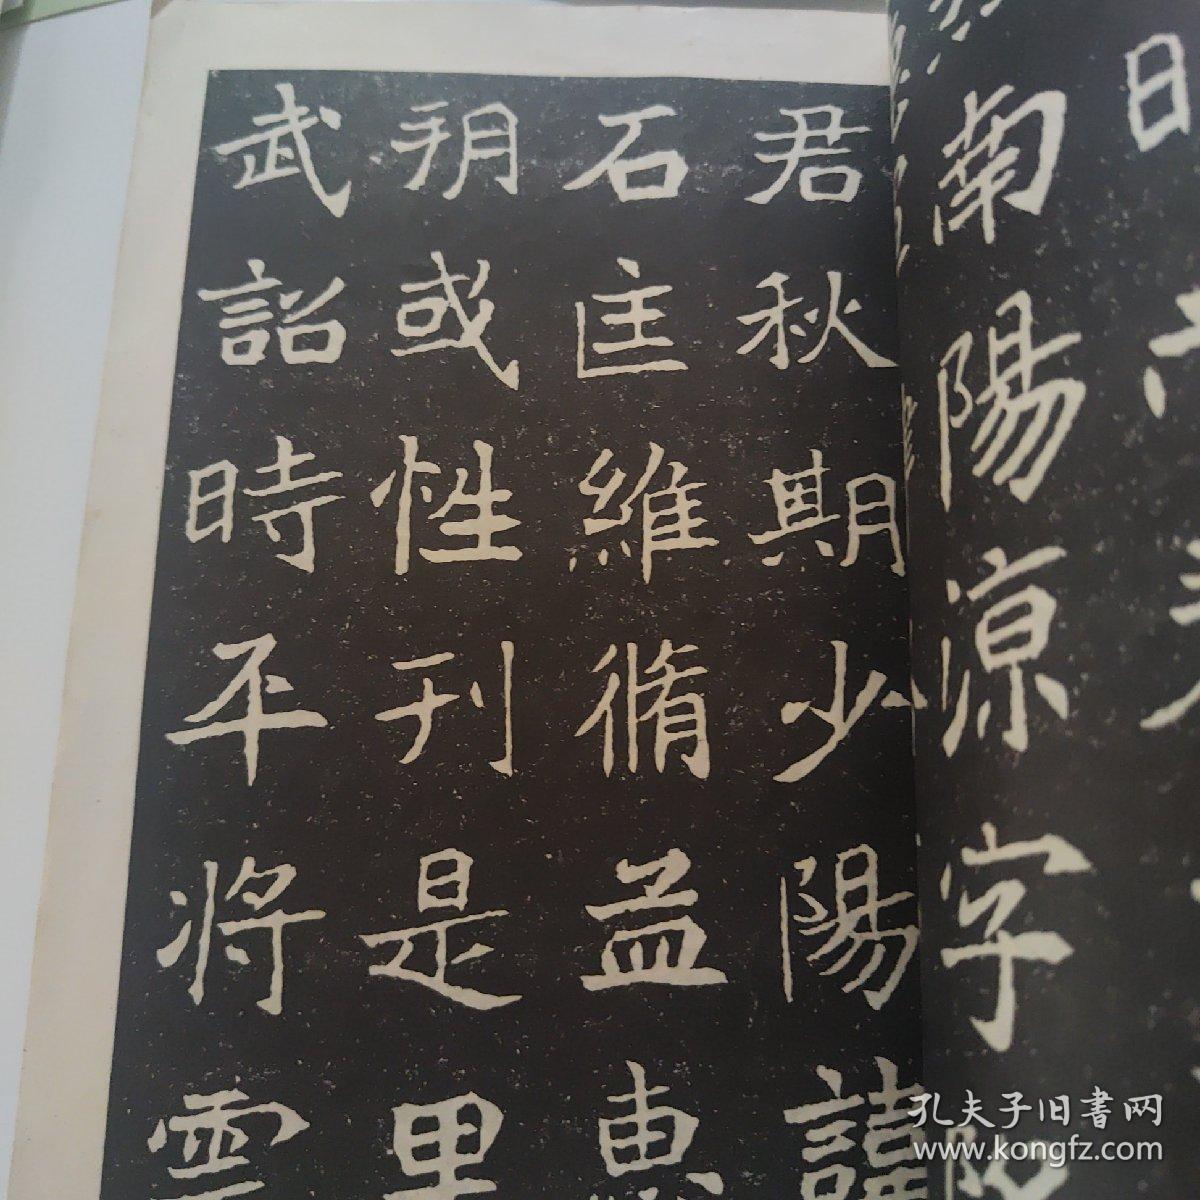 南陽涼字
君秋期少陽諱
石匡維脩益
玥或性刊是
武詔時平將雲
孔夫子旧書网
www.kongfz.com